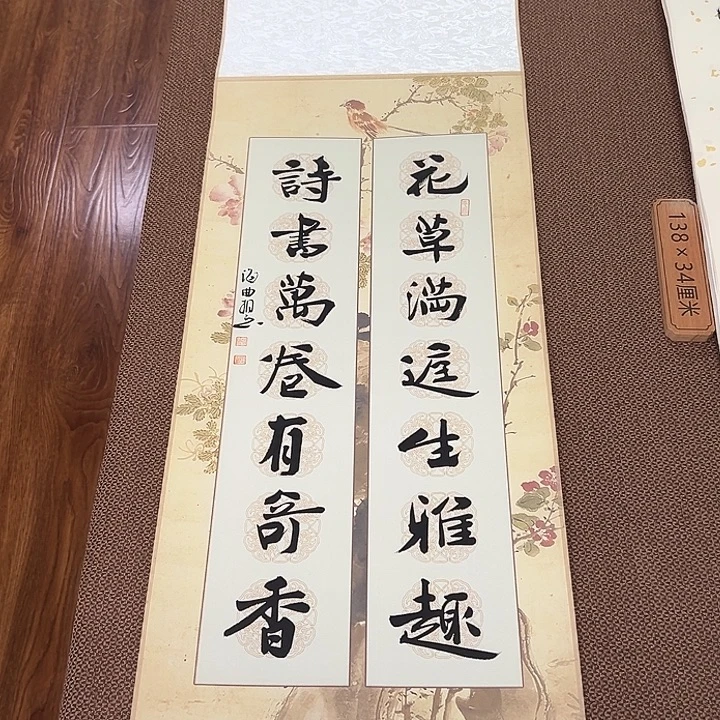 花草滿庭生雅趣
詩書萬卷有奇香
138×34厘米